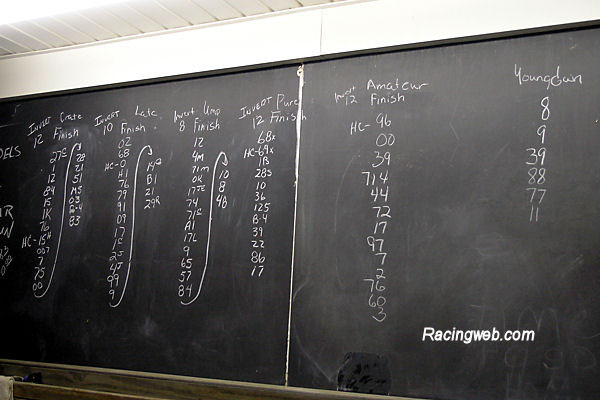 DELS
INVERT Crate
12 Finish
27c
1
12
84
15
1K
76
HC-15H
007
7
75
00
28
21
51
M5
03
2-4
83
INVERT Late
10 Finish
02
68
HC-0
H1
76
79
91
09
17
1c
25
45
99
9
19a
B1
21
29R
Invert Ump
8 Finish
12
4m
71m
OK
17SE
74
71c
A1
17L
9
65
57
84
10
8
48
INVERT Pure
12 Finish
68x
HC-69x
1B
28s
10
36
125
B-4
39
22
86
17
Invert Amateur
12 Finish
HC- 96
00
39
714
44
72
17
97
7
2
76
60
3
Youngdun
8
9
39
88
77
11
Racingweb.com